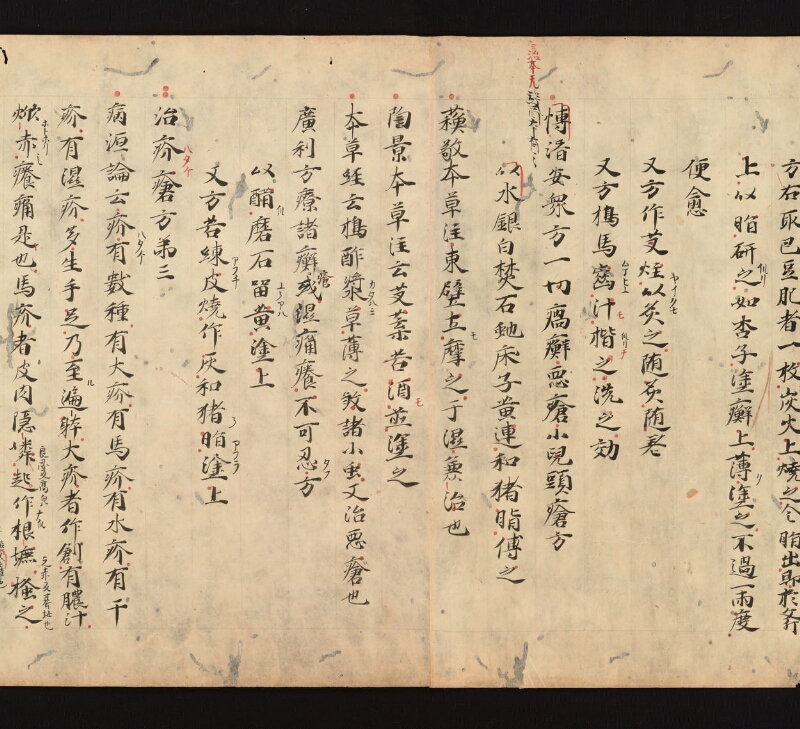 方右取巴豆肥者一枚炭火上燒之令脂出即於斧
上以脂研之如杏子塗癬上薄塗之不過一兩度
便愈
又方作艾炷以灸之随灸随老
又方楮馬齒汁楷之洗之効
博済安衆方一切瘑癬惡瘡小兒頭瘡方
以水銀白焚石虵床子黄連和猪脂傅之
蘓敬本草注東壁土摩之于湿兼治也
陶景本草注云艾葉苦酒煎塗之
本草経云搗酢漿草薄之煞諸小虫又治惡瘡也
廣利方療諸癬或湿痛癢不可忍方
以醋磨石留黄塗上
又方苦練皮燒作灰和猪脂塗上
治疥瘡方第三
病源論云疥有數種有大疥有馬疥有水疥有干
疥有湿疥多生手足乃至遍躰大疥者作創有膿汁
焮赤癢痛是也馬疥者皮肉隠嶙起作根墌掻之